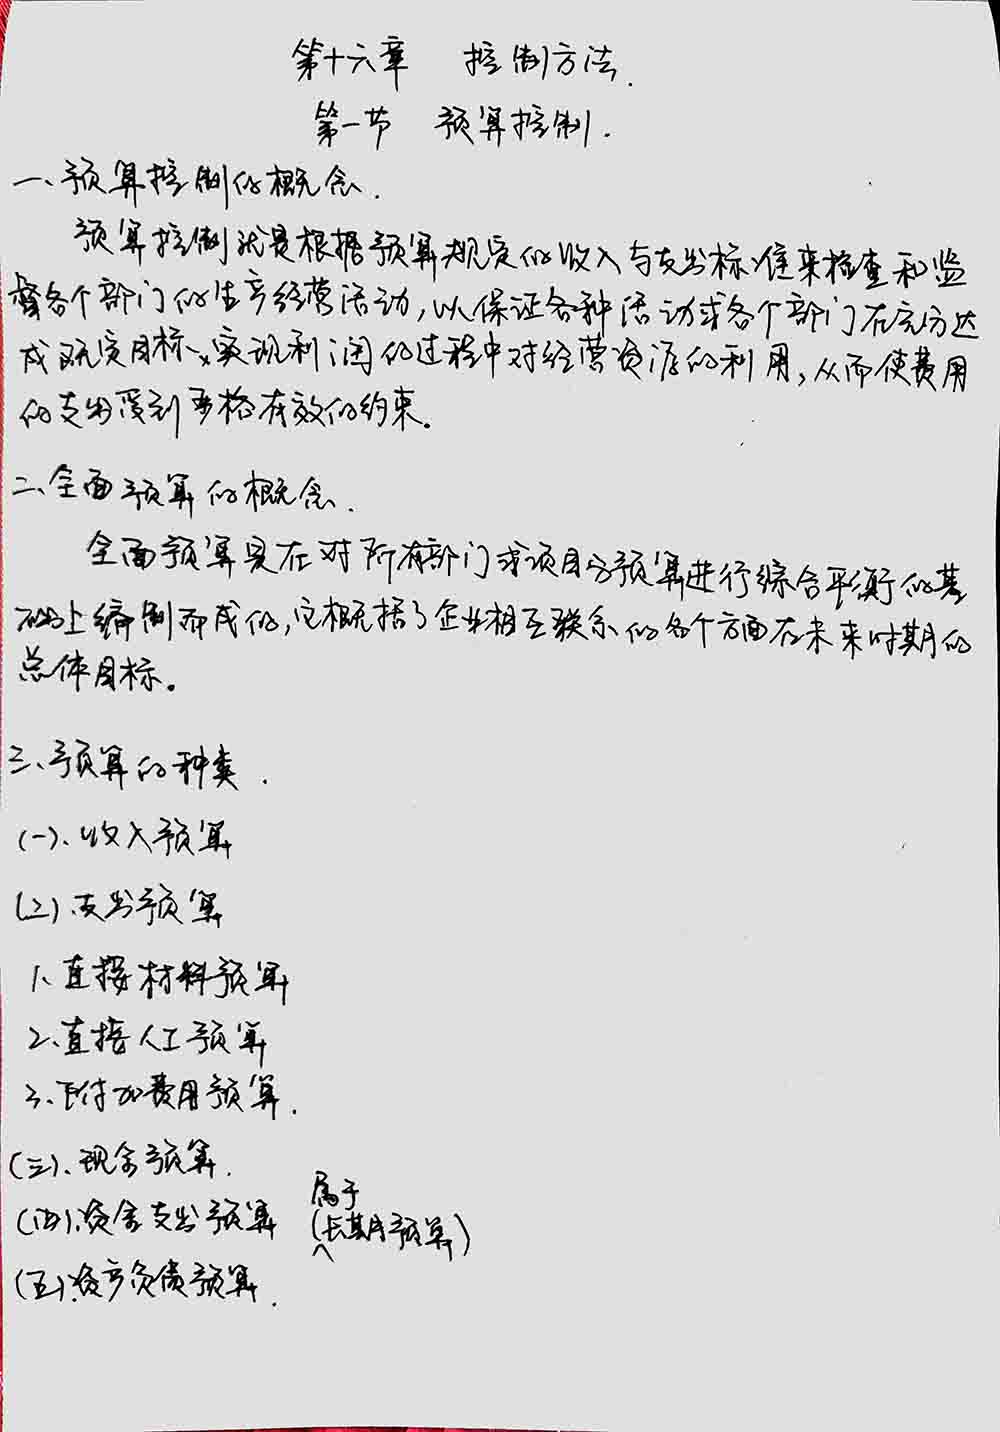 第十六章 控制方法.
第一节 预算控制.
一、预算控制的概念.
预算控制就是根据预算规定的收入与支出标准来检查和监
督各个部门的生产经营活动,以保证各种活动或各个部门在充分达
成既定目标、实现利润的过程中对经营资源的利用,从而使费用
的支出受到严格有效的约束。
二、全面预算的概念.
全面预算是在对所有部门或项目分预算进行综合平衡的基
础上编制而成的,它概括了企业相互联系的各个方面在未来时期的
总体目标。
三、预算的种类.
(一)、收入预算
(二)、支出预算
1、直接材料预算
2、直接人工预算
3、附加费用预算.
(三)、现金预算.
(四)、资金支出预算 (属于长期预算)
(五)、资产负债预算.